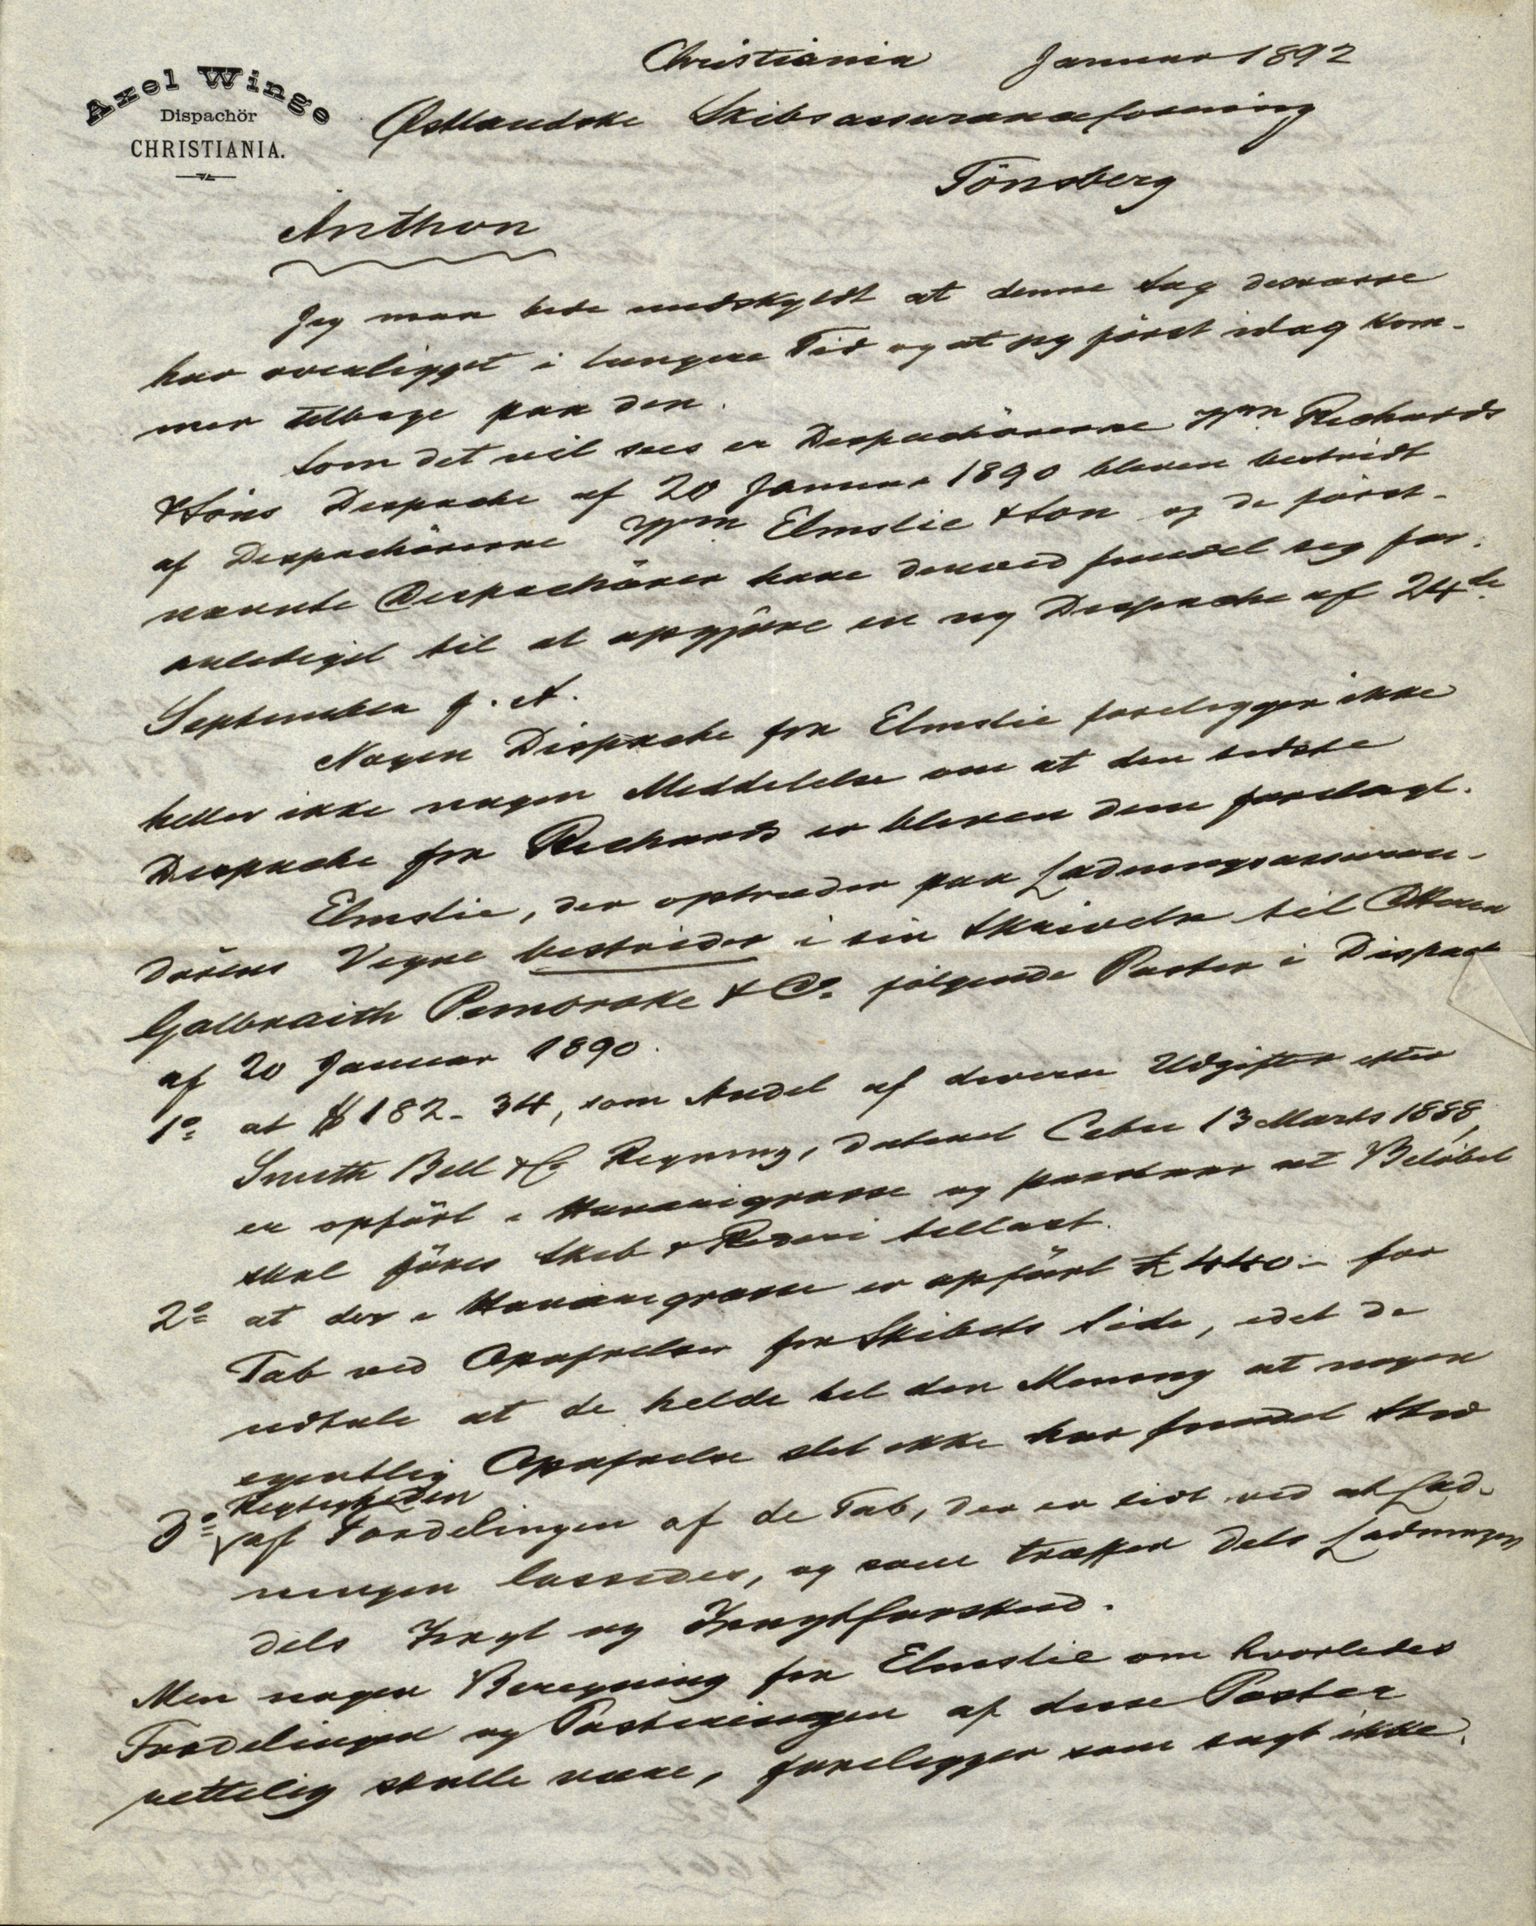 Axel Winge
Dispachör
CHRISTIANIA.
Christiania Januar 1892
Østlandske Skibsassuranceforening
Tönsberg
Anthon
Jeg maa bede undskyldt at denne Sag desværre
har overligget i længere Tid og at jeg först idag kom-
mer tilbage paa den.
Som det vil sees er Dispachörerne Wm Richards
& Söns Dispache af 20 Januar 1890 bleven bestridt
af Dispachörerne Wm Elmslie & Son og de först-
nævnte Dispachörer have derved fundet sig for-
anlediget til at opgjöre en ny Dispache af 24de
September f. A.
Nogen Dispache fra Elmslie foreligger ikke
heller ikke nogen Meddelelse om at den sidste
Dispache fra Richards er bleven dem forelagt.
Elmslie, der optræder paa Ladningsassuran-
dörens Vegne bestrider i sin Skrivelse til
Galbraith Pembroke & Co. fölgende Poster i Dispache
af 20 Januar 1890.
1o at $182-34, som Andel af diverse Udgifter efter
Smith Bell & Co Regning, dateret Cebu 13 Marts 1888,
er opfört i Havarigrosse og paastaar at Belöbet
skal föres Skib & Rederi tillast.
2o at der i Havarigrosse er opfört £440.- for
Tab ved Opofrelser fra Skibets Side, idet de
udtale at de helde til den Mening at nogen
egentlig Opofrelse slet ikke har fundet Sted
3o Rigtigheden
af Fordelingen af de Tab, der er lidt ved at Lad-
ningen lossedes, og som træffer dels Ladningen
dels Fragt og Fragtforskud.
Men nogen Beregning fra Elmslie om hvorledes
Fordelingen og Posteringen af disse Poster
rettelig skulle være, foreligger som sagt ikke.